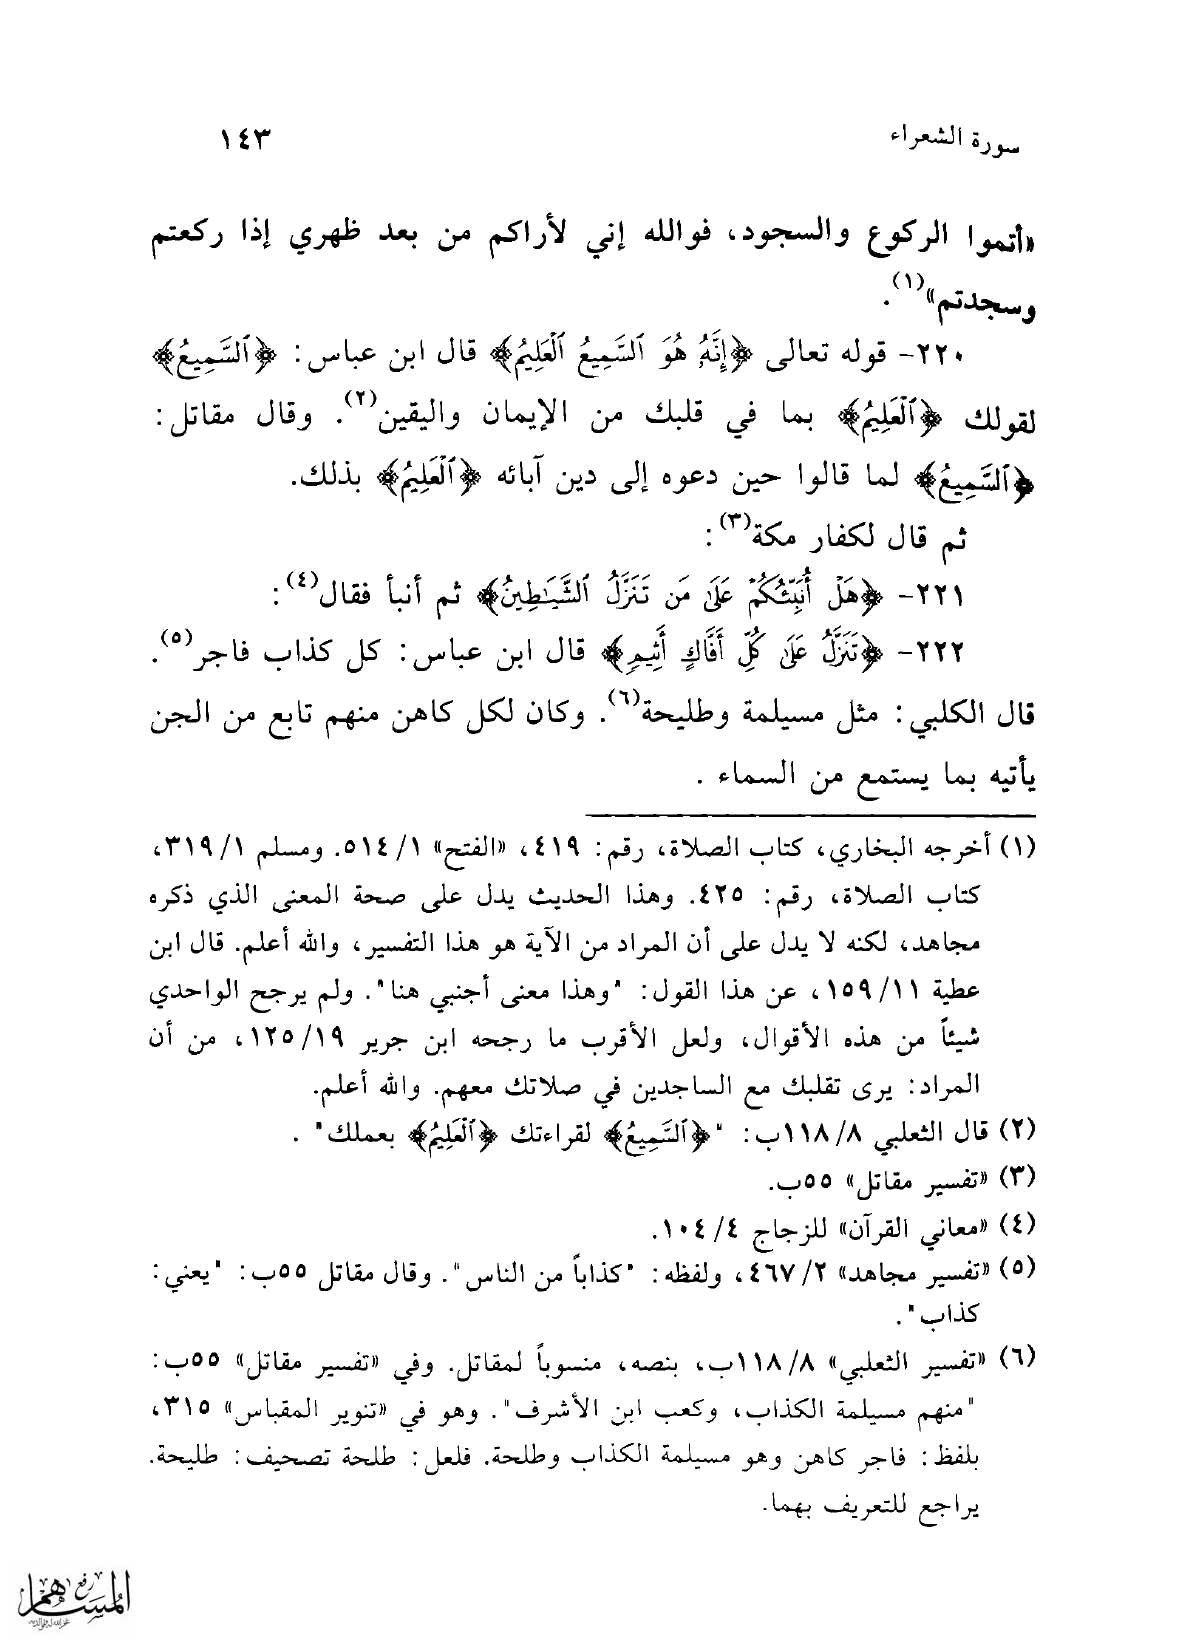 سورة الشعراء ١٤٣
«أتموا الركوع والسجود، فوالله إني لأراكم من بعد ظهري إذا ركعتم
وسجدتم»(١).
٢٢٠- قوله تعالى ﴿إِنَّهُۥ هُوَ ٱلسَّمِيعُ ٱلْعَلِيمُ﴾ قال ابن عباس: ﴿ٱلسَّمِيعُ﴾
لقولك ﴿ٱلْعَلِيمُ﴾ بما في قلبك من الإيمان واليقين(٢). وقال مقاتل:
﴿ٱلسَّمِيعُ﴾ لما قالوا حين دعوه إلى دين آبائه ﴿ٱلْعَلِيمُ﴾ بذلك.
ثم قال لكفار مكة(٣):
٢٢١- ﴿هَلْ أُنَبِّئُكُمْ عَلَىٰ مَن تَنَزَّلُ ٱلشَّيَٰطِينُ﴾ ثم أنبأ فقال(٤):
٢٢٢- ﴿تَنَزَّلُ عَلَىٰ كُلِّ أَفَّاكٍ أَثِيمٍ﴾ قال ابن عباس: كل كذاب فاجر(٥).
قال الكلبي: مثل مسيلمة وطليحة(٦). وكان لكل كاهن منهم تابع من الجن
يأتيه بما يستمع من السماء .
(١) أخرجه البخاري، كتاب الصلاة، رقم: ٤١٩، «الفتح» ١/ ٥١٤. ومسلم ١/ ٣١٩،
كتاب الصلاة، رقم: ٤٢٥. وهذا الحديث يدل على صحة المعنى الذي ذكره
مجاهد، لكنه لا يدل على أن المراد من الآية هو هذا التفسير، والله أعلم. قال ابن
عطية ١١/ ١٥٩، عن هذا القول: "وهذا معنى أجنبي هنا". ولم يرجح الواحدي
شيئاً من هذه الأقوال، ولعل الأقرب ما رجحه ابن جرير ١٩/ ١٢٥، من أن
المراد: يرى تقلبك مع الساجدين في صلاتك معهم. والله أعلم.
(٢) قال الثعلبي ٨/ ١١٨ب: "﴿ٱلسَّمِيعُ﴾ لقراءتك ﴿ٱلْعَلِيمُ﴾ بعملك" .
(٣) «تفسير مقاتل» ٥٥ب.
(٤) «معاني القرآن» للزجاج ٤/ ١٠٤.
(٥) «تفسير مجاهد» ٢/ ٤٦٧، ولفظه: "كذاباً من الناس". وقال مقاتل ٥٥ب: "يعني:
كذاب".
(٦) «تفسير الثعلبي» ٨/ ١١٨ب، بنصه، منسوباً لمقاتل. وفي «تفسير مقاتل» ٥٥ب:
"منهم مسيلمة الكذاب، وكعب ابن الأشرف". وهو في «تنوير المقباس» ٣١٥،
بلفظ: فاجر كاهن وهو مسيلمة الكذاب وطلحة. فلعل: طلحة تصحيف: طليحة.
يراجع للتعريف بهما.